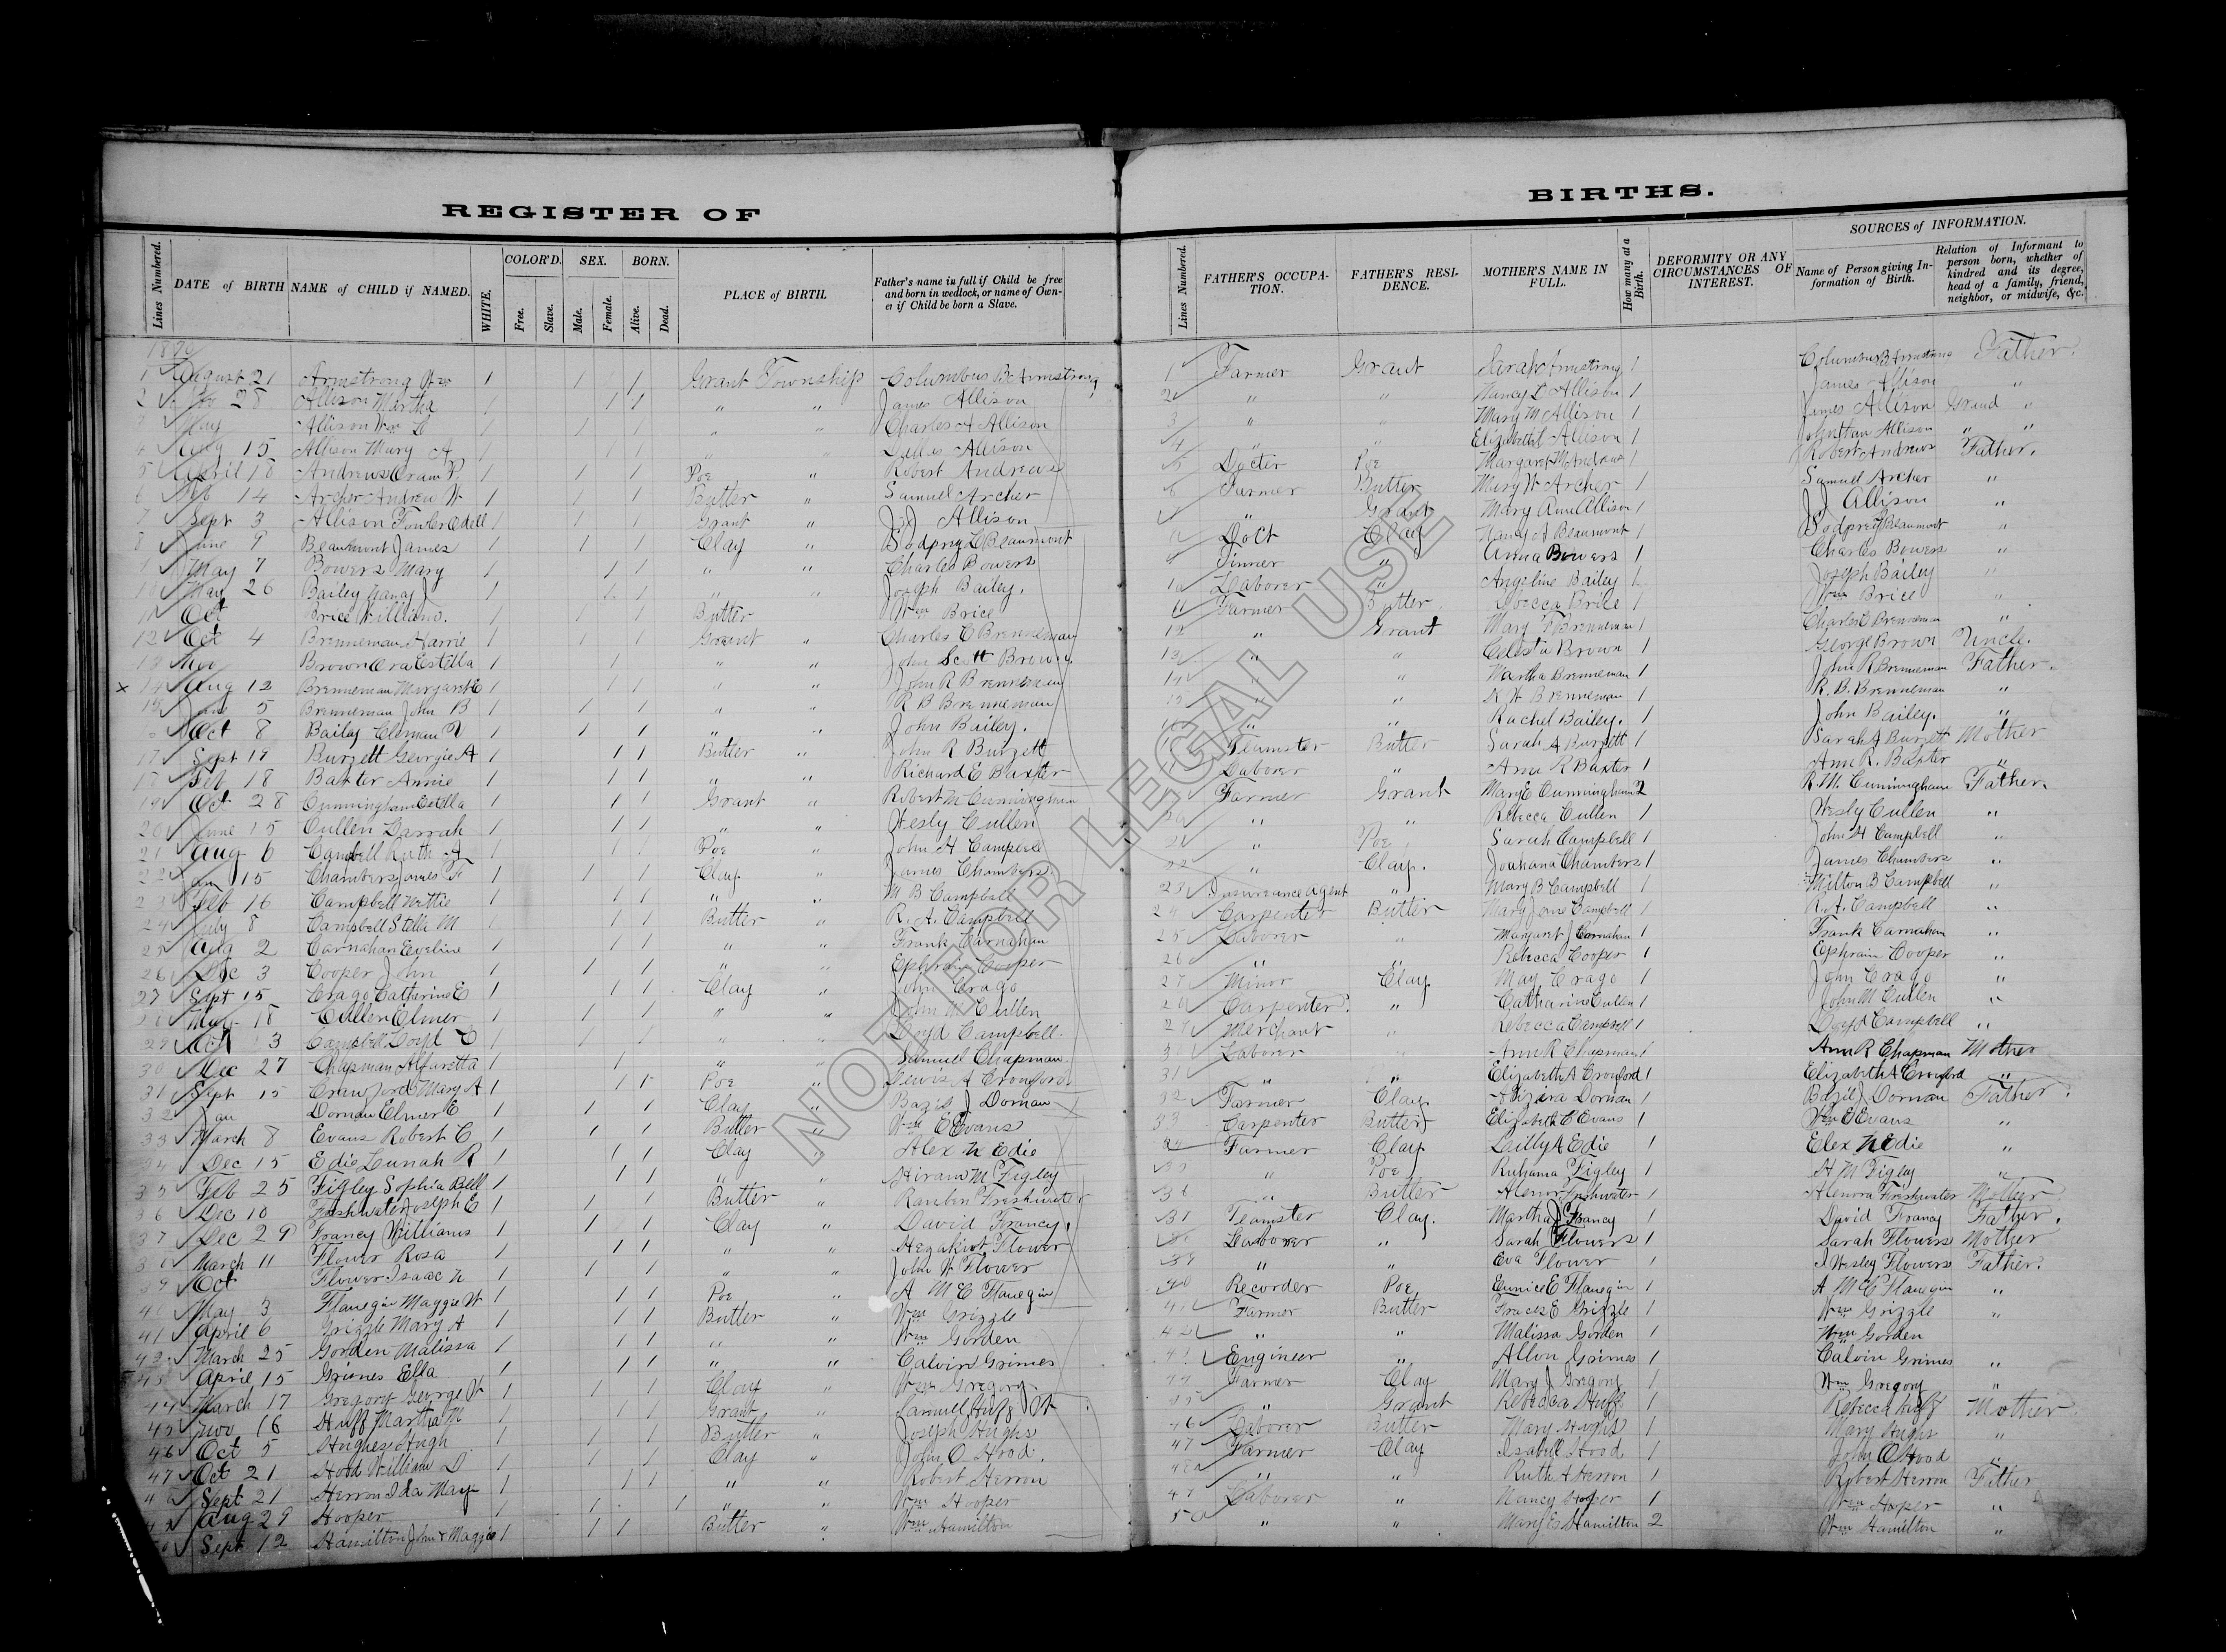 REGISTER OF BIRTHS.
Lines Numbered. DATE of BIRTH NAME of CHILD if NAMED. WHITE. COLOR'D. Free. Slave. SEX. Male. Female. BORN. Alive. Dead. PLACE of BIRTH. Father's name in full if Child be free and born in wedlock, or name of Owner if Child be born a Slave. Lines Numbered. FATHER'S OCCUPATION. FATHER'S RESIDENCE. MOTHER'S NAME IN FULL. How many at a Birth. DEFORMITY OR ANY CIRCUMSTANCES OF INTEREST. SOURCES of INFORMATION. Name of Person giving Information of Birth. Relation of Informant to person born, whether of kindred and its degree, head of a family, friend, neighbor, or midwife, &c.
1 August 21 Armstrong Wm 1 1 1 Grant Township Columbus B Armstrong 1 Farmer Grant Sarah Armstrong 1 Columbus B Armstrong Father
2 28 Allison Martha 1 1 1 " " James Allison 2 " " Nancy L Allison 1 James Allison "
3 May Allison Wm 1 1 1 " " Charles A Allison 3 " " Mary M Allison 1 James Allison Grand "
4 Aug 15 Allison Mary A 1 1 1 " " Allison 4 " " Elizabeth Allison 1 Johnathan Allison " "
5 April 18 Andrews Oram P. 1 1 1 Poe " Robert Andrews 5 Docter Poe Margaret M Andrews 1 Robert Andrews Father.
6 Feb 14 Archer Andrew W 1 1 1 Butler " Samuel Archer 6 Farmer Butler Mary W Archer 1 Samuel Archer "
7 Sept 3 Allison Fowler Odell 1 1 1 Grant " J J Allison " Grant Mary Ann Allison 1 J J Allison "
8 June 9 Beaumont James 1 1 1 Clay " Beaumont Doct Clay Nancy A Beaumont 1 Beaumont "
May 7 Bowers Mary 1 1 1 " " Charles Bowers 9 Tinner " Anna Bowers 1 Charles Bowers "
10 May 26 Bailey Nancy J 1 1 1 " " Joseph Bailey. 10 Laborer " Angeline Bailey 1 Joseph Bailey "
11 Oct Brice William. 1 1 1 Butler Wm Brice 11 Farmer Butler Rebecca Brice 1 Wm Brice "
12 Oct 4 Brenneman Harrie 1 1 Grant " Charles C Brenneman 12 " Grant Mary F Brenneman 1 Charles Brenneman "
13 Nov Brown Ora Estella 1 1 " " John Scott Brown 13 " " Celestia Brown 1 George Brown Uncle.
x 14 Aug 12 Brenneman Margaret E 1 1 1 " " John R Brenneman 14 " " Martha Brenneman 1 John R Brenneman Father.
15 June 5 Brenneman John B 1 1 1 " " R B Brenneman 15 " " Brenneman 1 R. B. Brenneman "
Oct 8 Bailey 1 1 1 " " John Bailey. 16 " " Rachel Bailey. 1 John Bailey. "
17 Sept 19 Burzett Georgie A 1 1 1 Butler " John R Burzett Teamster Butler Sarah A Burzett 1 Sarah A Burzett Mother
18 Feb 18 Baxter Annie 1 1 1 " " Richard E Baxter Laborer " Ann R Baxter 1 Ann R. Baxter "
19 Oct 28 Cunningham Estella 1 1 1 Grant " Robert M Cunningham Farmer Grant Mary E Cunningham 2 R. M. Cunningham Father.
20 June 15 Cullen Sarrah 1 1 1 " " Wesly Cullen 20 " " Rebecca Cullen 1 Wesly Cullen "
21 Aug 6 Campbell Ruth A 1 1 1 Poe " John A Campbell 21 " Poe Sarah Campbell 1 John A Campbell "
22 Jan 15 Chambers James F 1 1 1 Clay. " James Chambers 22 " Clay. Joahana Chambers 1 James Chambers "
23 Feb 16 Campbell Nettie 1 1 1 " " M B Campbell 23 Insurance Agent " Mary B Campbell 1 Milton B Campbell "
24 July 8 Campbell Stella M 1 1 1 Butler " R. A. Campbell 24 Carpenter Butler Mary Jane Campbell 1 R. A. Campbell "
25 Aug 2 Carnahan Eveline 1 1 1 " " Frank Carnahan 25 Laborer " Margaret J Carnahan 1 Frank Carnahan "
26 Dec 3 Cooper John 1 1 1 " " Ephraim Cooper 26 " " Rebecca Cooper 1 Ephraim Cooper "
27 Sept 15 Crago Catherine E 1 1 1 Clay " John Crago 27 Minor Clay May Crago 1 John Crago "
28 May 18 Cullen Elmer 1 1 1 " " John M Cullen 28 Carpenter. " Catharine Cullen 1 John M Cullen "
29 Oct 13 Campbell Loyd C 1 1 1 " " Loyd Campbell. 29 Merchant " Rebecca Campbell 1 Loyd Campbell "
30 Dec 27 Chapman Alfaretta 1 1 " " Samuel Chapman. Laborer " Ann R Chapman 1 Ann R Chapman Mother
31 Sept 15 Crawford Mary A 1 1 1 Poe " Lewis A Croxford 31 " " Elizabeth A Croxford 1 Elizabeth A Croxford "
32 Jan Dornan Elmer E 1 1 1 Clay " Bazil J Dornan 32 Farmer Clay. Dornan 1 Bazil J Dornan Father.
33 March 8 Evans Robert C 1 1 1 Butler " Wm E Evans 33 Carpenter Butler Elizabeth C Evans 1 Wm E Evans "
34 Dec 15 Edie Lunah R 1 1 1 Clay " Alex N Edie 34 Farmer Clay Lilly A Edie 1 Elex N Edie "
35 Feb 25 Figley Sophia Bell 1 1 1 " " Hiram M Figley 35 " Poe Ruhama Figley 1 H M Figley "
36 Dec 10 Freshwater Joseph E 1 1 1 Butler " Freshwater 36 " Butler Freshwater 1 Alenora Freshwater Mother
37 Dec 29 Francy Williams 1 1 1 Clay " David Francy. 37 Teamster Clay. Martha J Francy 1 David Francy Father.
38 March 11 Flower Rosa 1 1 1 " " Flower Laborer " Sarah Flowers 1 Sarah Flowers Mother
39 Oct Flower Isaac N 1 1 1 " " John W Flower 39 " " Eva Flower 1 J Wesley Flowers Father.
40 May 3 Flanegin Maggie W 1 1 1 Poe " A M C Flanegin 40 Recorder Poe Eunice E Flanegin 1 A M C Flanegin "
41 April 6 Grizzle Mary A 1 1 1 Butler " Wm Grizzle 41 Farmer Butler Fraces E Grizzle 1 Wm Grizzle "
42 March 25 Gorden Malissa 1 1 1 " " Wm Gorden 42 " " Malissa Gorden 1 Wm Gorden
43 April 15 Grimes Ella 1 1 1 " " Calvin Grimes 43 Engineer " Grimes 1 Calvin Grimes "
44 March 17 Gregory George W 1 1 1 Clay " Wm Gregory 44 Farmer Clay Mary J Gregory 1 Wm Gregory "
45 Nov 16 Huff Martha M 1 1 1 Grant " Samuel Huff 45 " Grant Rebecca Huff 1 Rebecca Huff Mother
46 Oct 5 Hughes Hugh 1 1 1 Butler " Joseph Hughs 46 Laborer Butler Mary Hughs 1 Mary Hughs "
47 Oct 21 Hood William D. 1 1 1 Clay " John O Hood. 47 Farmer Clay Isabell Hood 1 John O Hood "
48 Sept 21 Herron Ida May 1 1 1 " " Robert Herron 48 " " Ruth A Herron 1 Robert Herron Father
Aug 29 Hooper 1 1 1 " " Wm Hooper 49 Laborer " Nancy Hooper 1 Wm Hooper "
Sept 12 Hamilton John & Maggie 1 1 1 Butler " Wm Hamilton 50 " " Mary E Hamilton 2 Wm Hamilton "
NOT FOR LEGAL USE